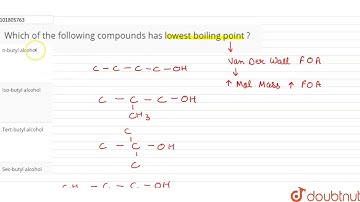 101805763
Which of the following compounds has lowest boiling point ?
n-butyl alcohol
Van Der Wall F O A
↑ Mol. Mass ↑ F O A
C - C - C - C - OH
Iso-butyl alcohol
C - C - C - OH
CH3
Tert-butyl alcohol
C
C - C - OH
C
Sec-butyl alcohol
CH - C - C - OH
doubtnut